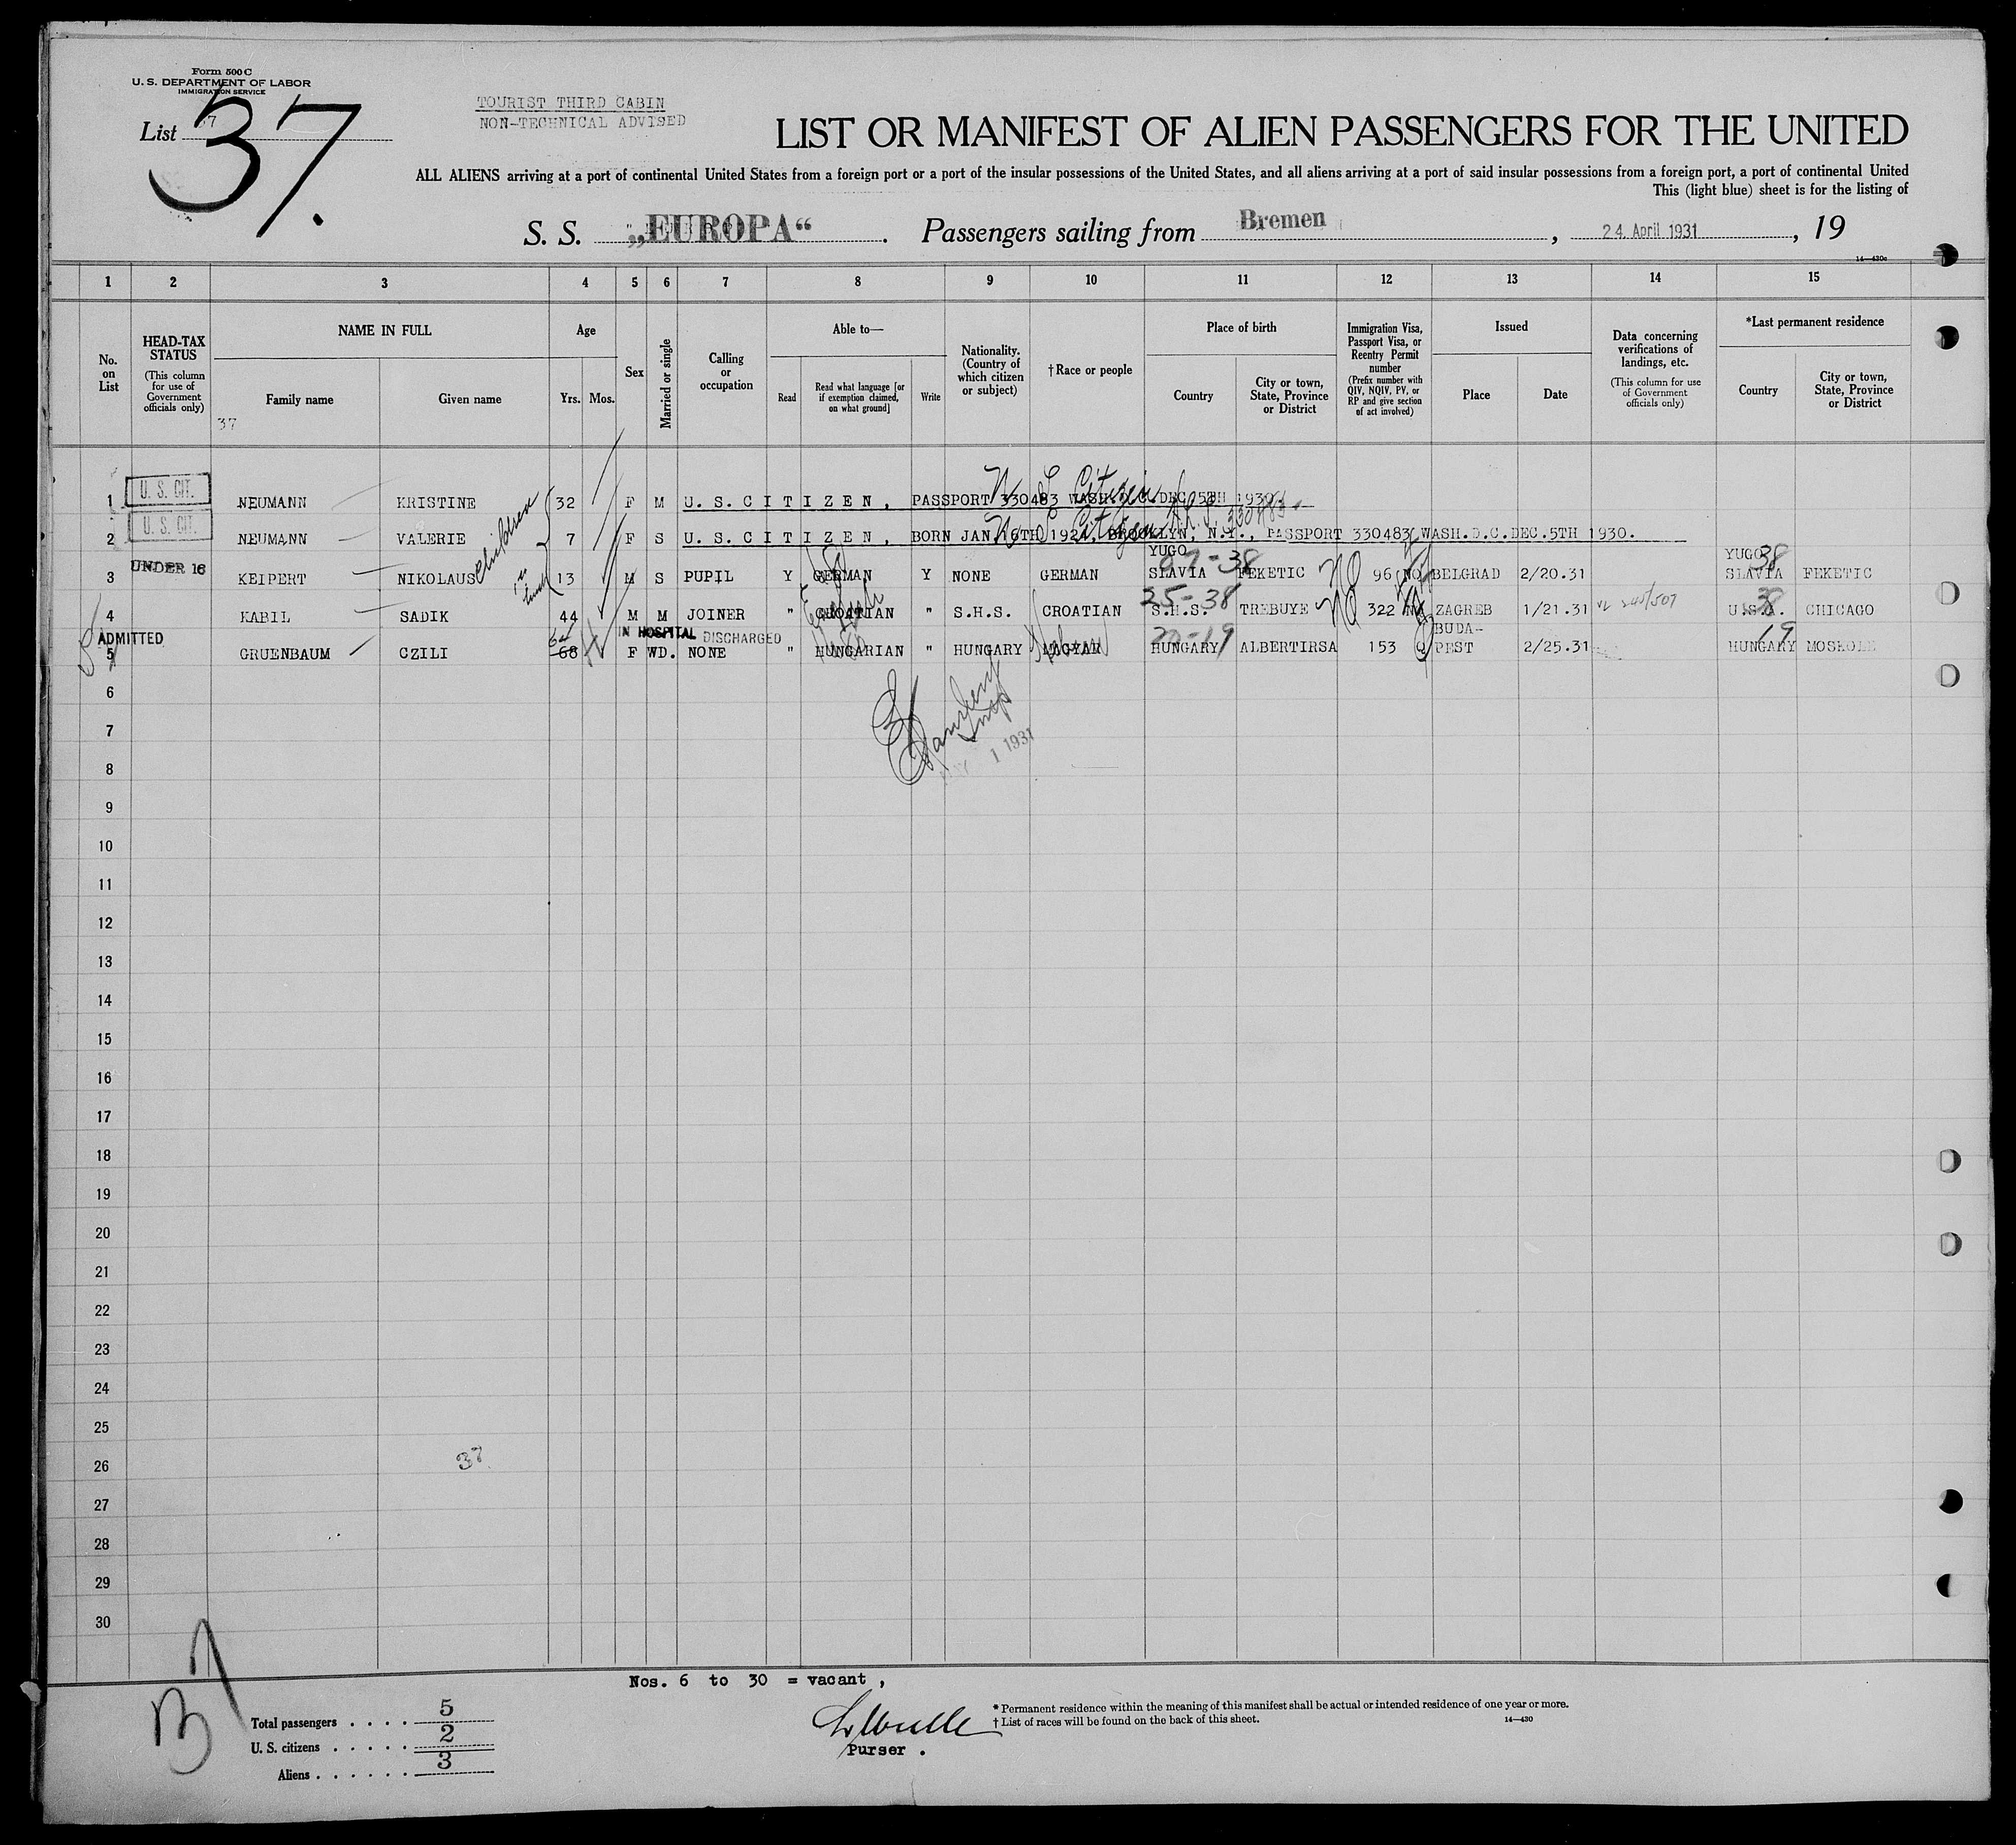 Form 500 C
U. S. DEPARTMENT OF LABOR
IMMIGRATION SERVICE
List 37
37.
TOURIST THIRD CABIN
NON-TECHNICAL ADVISED
LIST OR MANIFEST OF ALIEN PASSENGERS FOR THE UNITED
ALL ALIENS arriving at a port of continental United States from a foreign port or a port of the insular possessions of the United States, and all aliens arriving at a port of said insular possessions from a foreign port, a port of continental United
This (light blue) sheet is for the listing of
S. S. „EUROPA“. Passengers sailing from Bremen, 24. April 1931, 19
14—430c
1 2 3 4 5 6 7 8 9 10 11 12 13 14 15
No. on List
HEAD-TAX STATUS (This column for use of Government officials only)
NAME IN FULL
Family name
Given name
37
Age
Yrs. Mos.
Sex
Married or single
Calling or occupation
Able to—
Read
Read what language [or if exemption claimed, on what ground]
Write
Nationality. (Country of which citizen or subject)
†Race or people
Place of birth
Country
City or town, State, Province or District
Immigration Visa, Passport Visa, or Reentry Permit number (Prefix number with QIV, NQIV, PV, or RP and give section of act involved)
Issued
Place
Date
Data concerning verifications of landings, etc. (This column for use of Government officials only)
*Last permanent residence
Country
City or town, State, Province or District
1 U. S. CIT. NEUMANN KRISTINE 32 F M U. S. C I T I Z E N , PASSPORT 330483 WASH.D.C.DEC.5TH 1930.
Citizen
2 U. S. CIT. NEUMANN VALERIE 7 F S U. S. C I T I Z E N , BORN JAN.16TH 1924, BROOKLYN, N.Y., PASSPORT 330483 WASH.D.C.DEC.5TH 1930.
Citizen 330483
children
3 UNDER 16 KEIPERT NIKOLAUS 13 M S PUPIL Y GERMAN Y NONE GERMAN YUGO SLAVIA FEKETIC NQ 96 NQ BELGRAD 2/20.31 YUGO SLAVIA FEKETIC
38
4 KABIL SADIK 44 M M JOINER " CROATIAN " S.H.S. CROATIAN S.H.S. TREBUYE NQ 322 ZAGREB 1/21.31 U.S.A. CHICAGO
25-38
English
ADMITTED
IN HOSPITAL DISCHARGED
5 GRUENBAUM CZILI 68 F WD. NONE " HUNGARIAN " HUNGARY MAGYAR HUNGARY ALBERTIRSA 153 Q BUDA-PEST 2/25.31 HUNGARY
19
Hebrew
Insp
1 1931
6
7
8
9
10
11
12
13
14
15
16
17
18
19
20
21
22
23
24
25
26
37
27
28
29
30
Nos. 6 to 30 = vacant ,
Total passengers . . . . 5
U. S. citizens . . . . . 2
Aliens . . . . . . 3
Purser .
* Permanent residence within the meaning of this manifest shall be actual or intended residence of one year or more.
† List of races will be found on the back of this sheet.
14—430